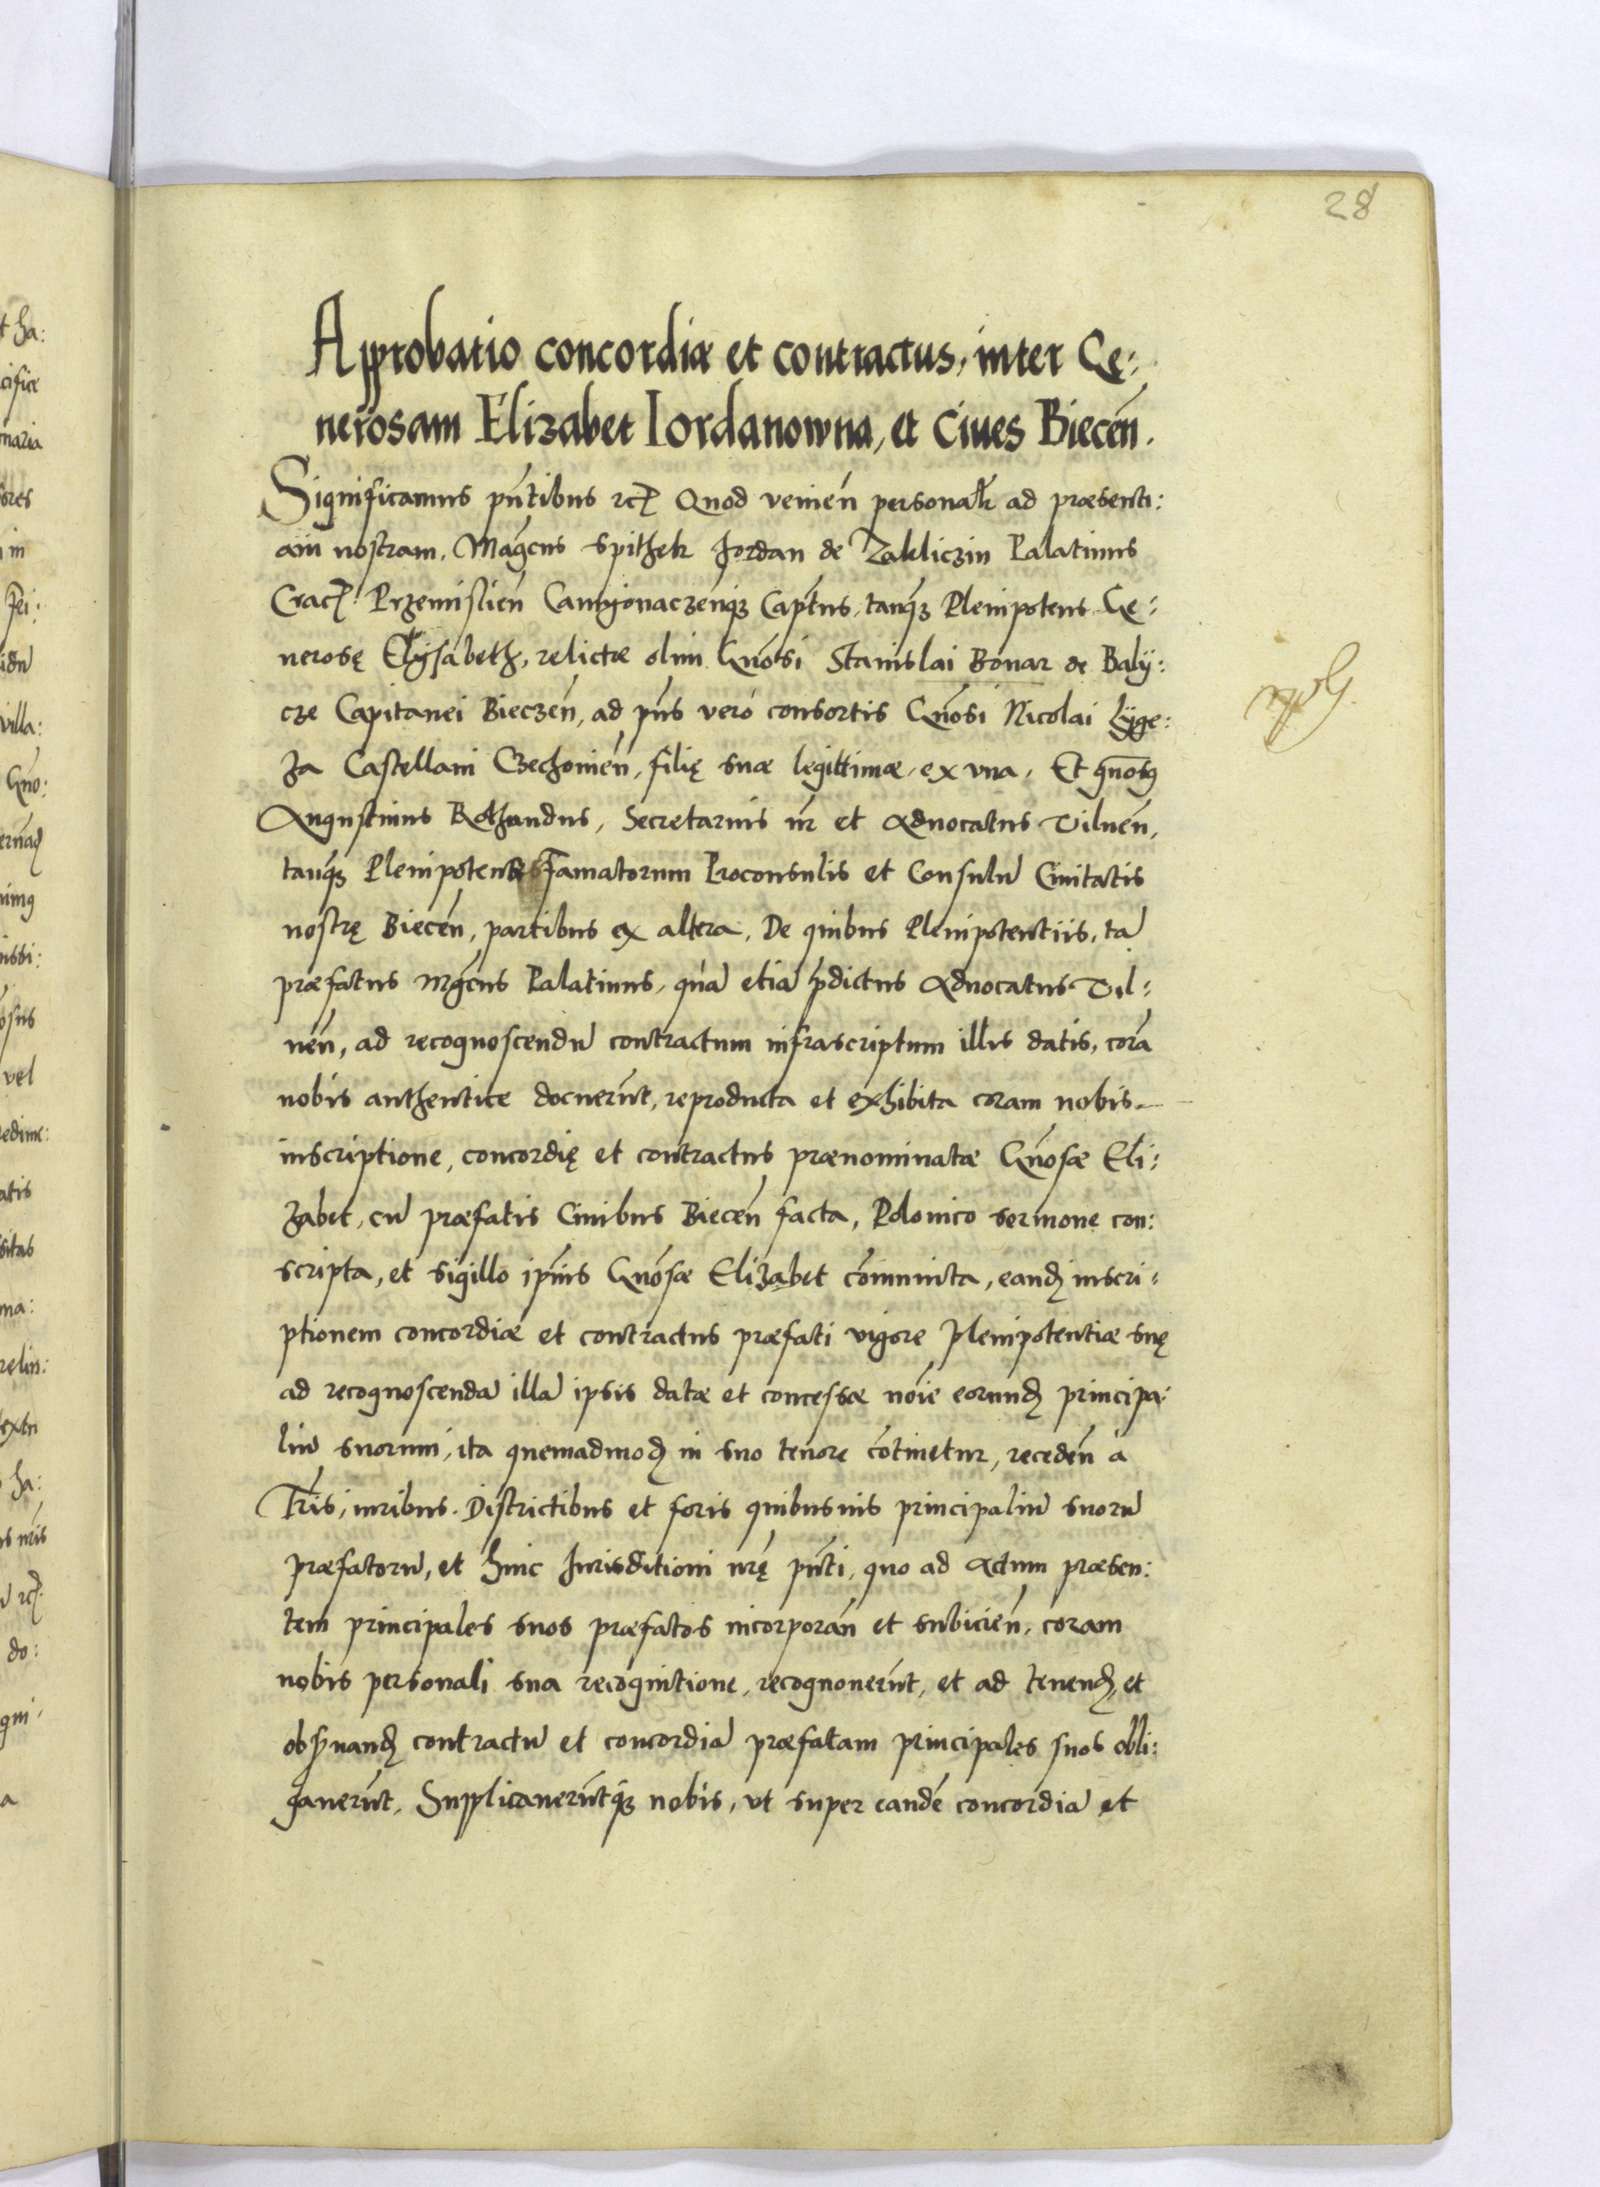 28
Approbatio concordiæ et contractus, inter Ge:
nerosam Elizabet Iordanowna, et Ciues Biecen̄.
Significamus pn̄tibus etc. Quod venien̄ personalr ad præsenti:
am nostram, Mag̃cus Spithek Jordan de Zakliczin Palatinus
Crac. Przemislien̄ Camyonaczen̄qꝫ Capt̄ns, tanqꝫ Plenipotens Ge:
nerosę Elysabeth, relictæ olim Gn̄osi Stanislai Bonar de Balÿ:
cze Capitanei Bieczen̄, ad pn̄s vero consortis Gn̄osi Nicolai Lÿge:
za Castellani Czechonien̄, filię suæ legittimæ, ex vna, Et gn̄osus
Augustinus Rothundus, Secretarius nr̄ et Aduocatus Vilnen̄,
tanqꝫ Plenipotens famatorum Proconsulis et Consulū Ciuitatis
nostrę Biecen̄, partibus ex altera, De quibus Plenipotentiis, tā
præfatus Mg̃cus Palatinus, quā etiā p̄dictus Aduocatus Vil:
nen̄, ad recognoscendū contractum infrascriptum illis datis, corā
nobis authentice docuerūt, reproducta et exhibita coram nobis
inscriptione, concordię et contractus prænominatæ Gn̄osæ Eli:
zabet, cū præfatis Ciuibus Biecen̄ facta, Polonico sermone con:
scripta, et sigillo ipsius Gn̄osæ Elizabet com̄unita, eandꝫ inscri:
ptionem concordiæ et contractus præfati vigore Plenipotentiæ suę
ad recognoscendā illā ipsis datæ et concessæ noīe eorundꝫ principa:
liū suorum, ita quemadmodꝫ in suo tenore cōtinetur, receden̄ a
Tr̄is, iuribus, Districtibus et foris quibusuis principaliū suorū
præfatorū, et huic Jurisditioni nr̄ę pn̄ti, quo ad Actum præsen:
tem principales suos præfatos incorporan̄ et subicien̄, coram
nobis personali sua recognitione, recognouerūt, et ad tenendꝫ et
obseruandꝫ contractū et concordiā præfatam principales suos obli:
gauerūt, Supplicauerūtqꝫ nobis, vt super eandē concordiā et